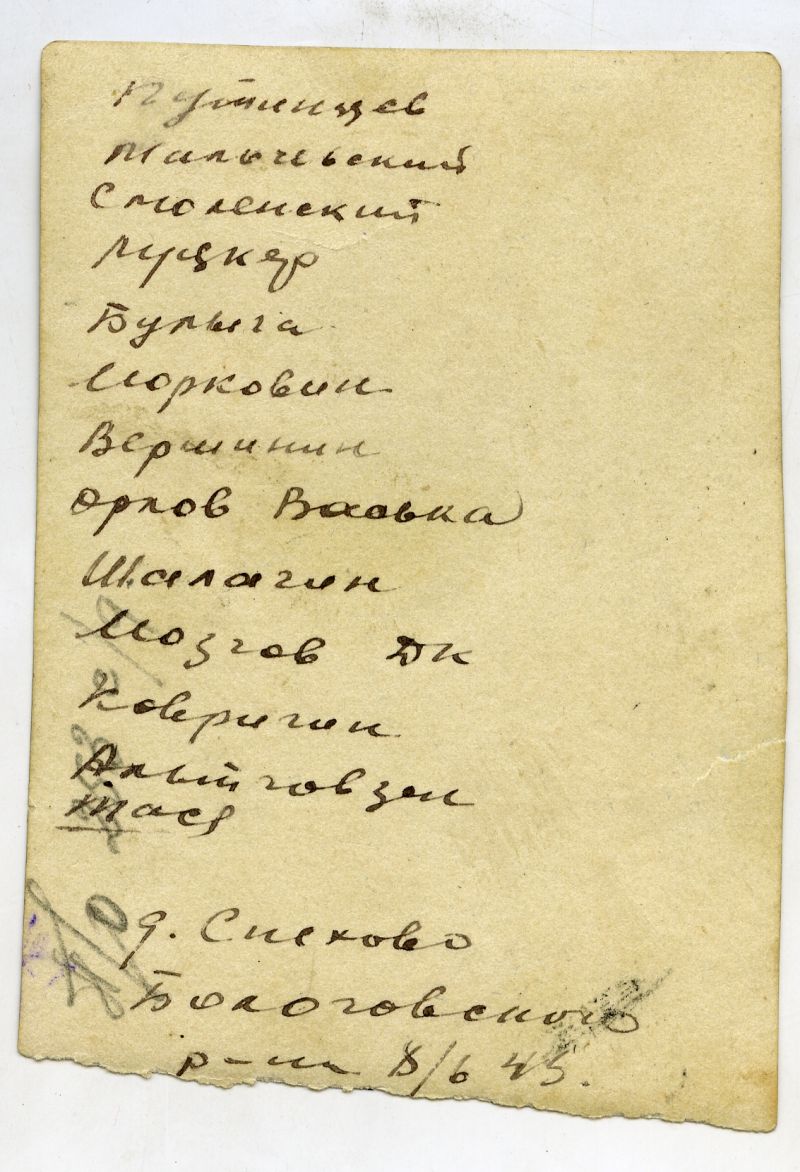 Путинцев
Мальчевский
Смоленский
Луцкер
Булыга
Морковин
Вершинин
Орлов Васька
Шалагин
Мозгов ДК
Ковригин
Тася
д.
Бологовского
р-на 8/6 43.